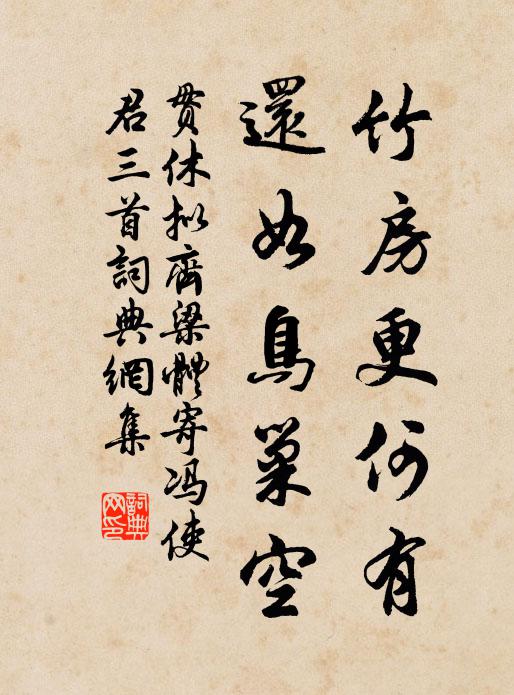 竹房更何有
還如鳥巢空
貫休擬齊梁體寄馮使
君三首詞典網集
詞典
網印